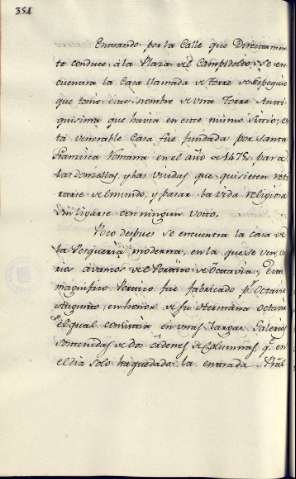 351
Entrando por la Calle que Directamen
te conduce, à la Plaza del Campidolio, se en
cuentra la Casa llamada de Torre de Espeguio
que tomò este nombre de una Torre Anti
quisima que havia en este mismo sitio; es
ta venerable Casa fue fundada por Santa
Francisca Romana en el año de 1475. para
las donzellas, y las Viudas que quisieren re
tirarse del mundo, y pasar la vida religiosa
sin ligarse con ningun Voto.
Poco despues se encuentra la casa de
la Pesqueria moderna, en la que se ven
barios de el Portico de Octavia, Este
magnifico Portico fue fabricado p.r Octavio
Augusto, en honor de su Hermana Octavia
el qual consistia en unas Largas Galerias
sostenidas de dos ordenes de Columnas q.e en
el dia solo ha quedado la entrada